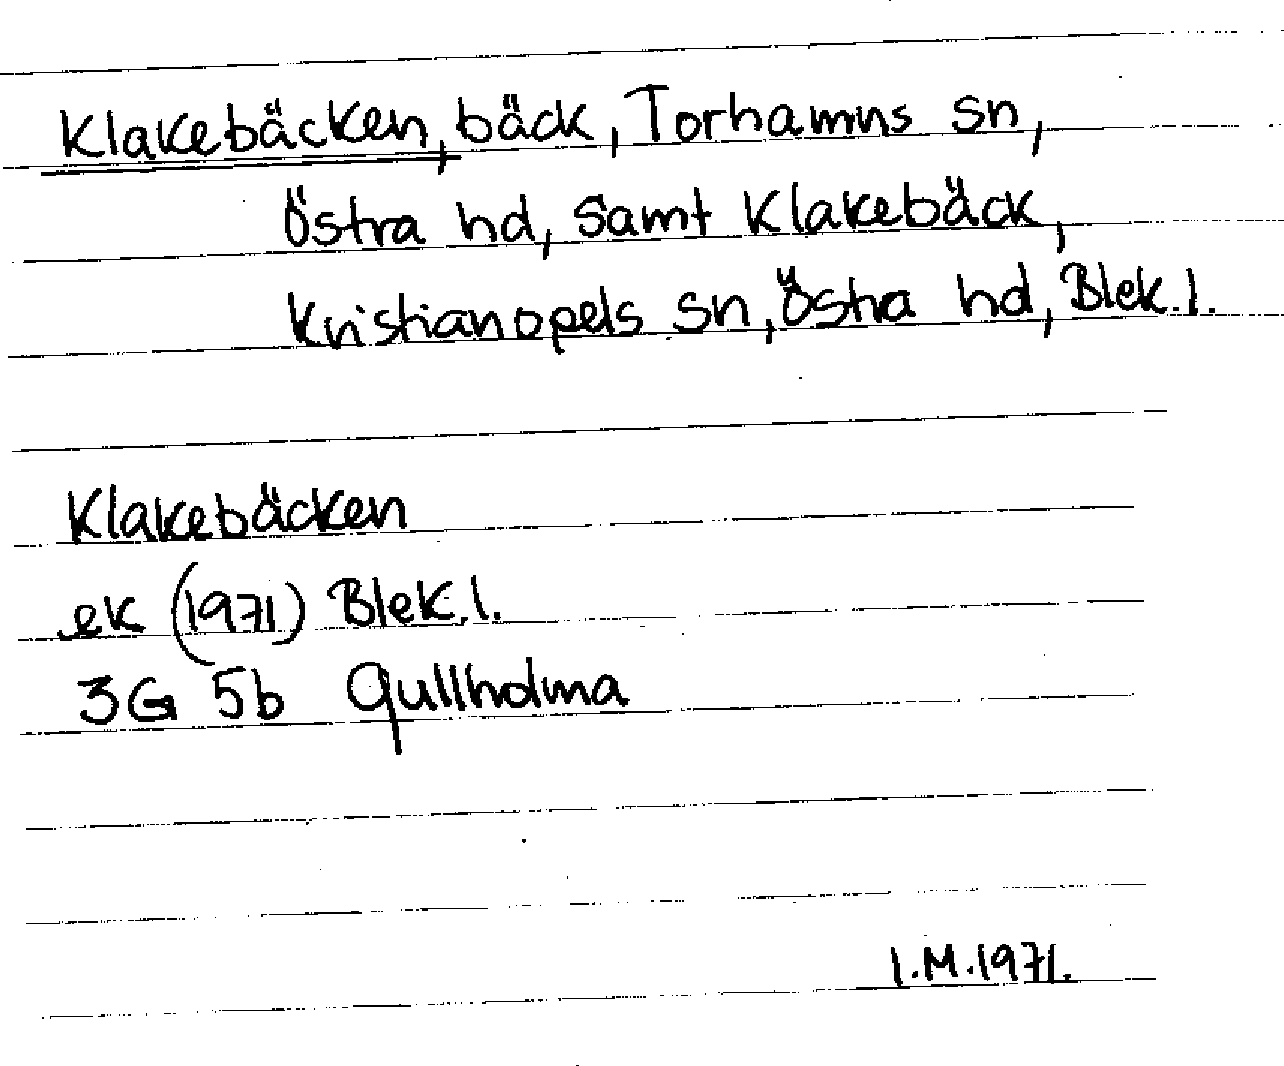 Klakebäcken, bäck, Torhamns sn,
Östra hd, samt Klakebäck,
Kristianopels sn, Östra hd, Blek.l.
Klakebäcken
ek (1971) Blek.l.
3G 5b Gullholma
I.M.1971.